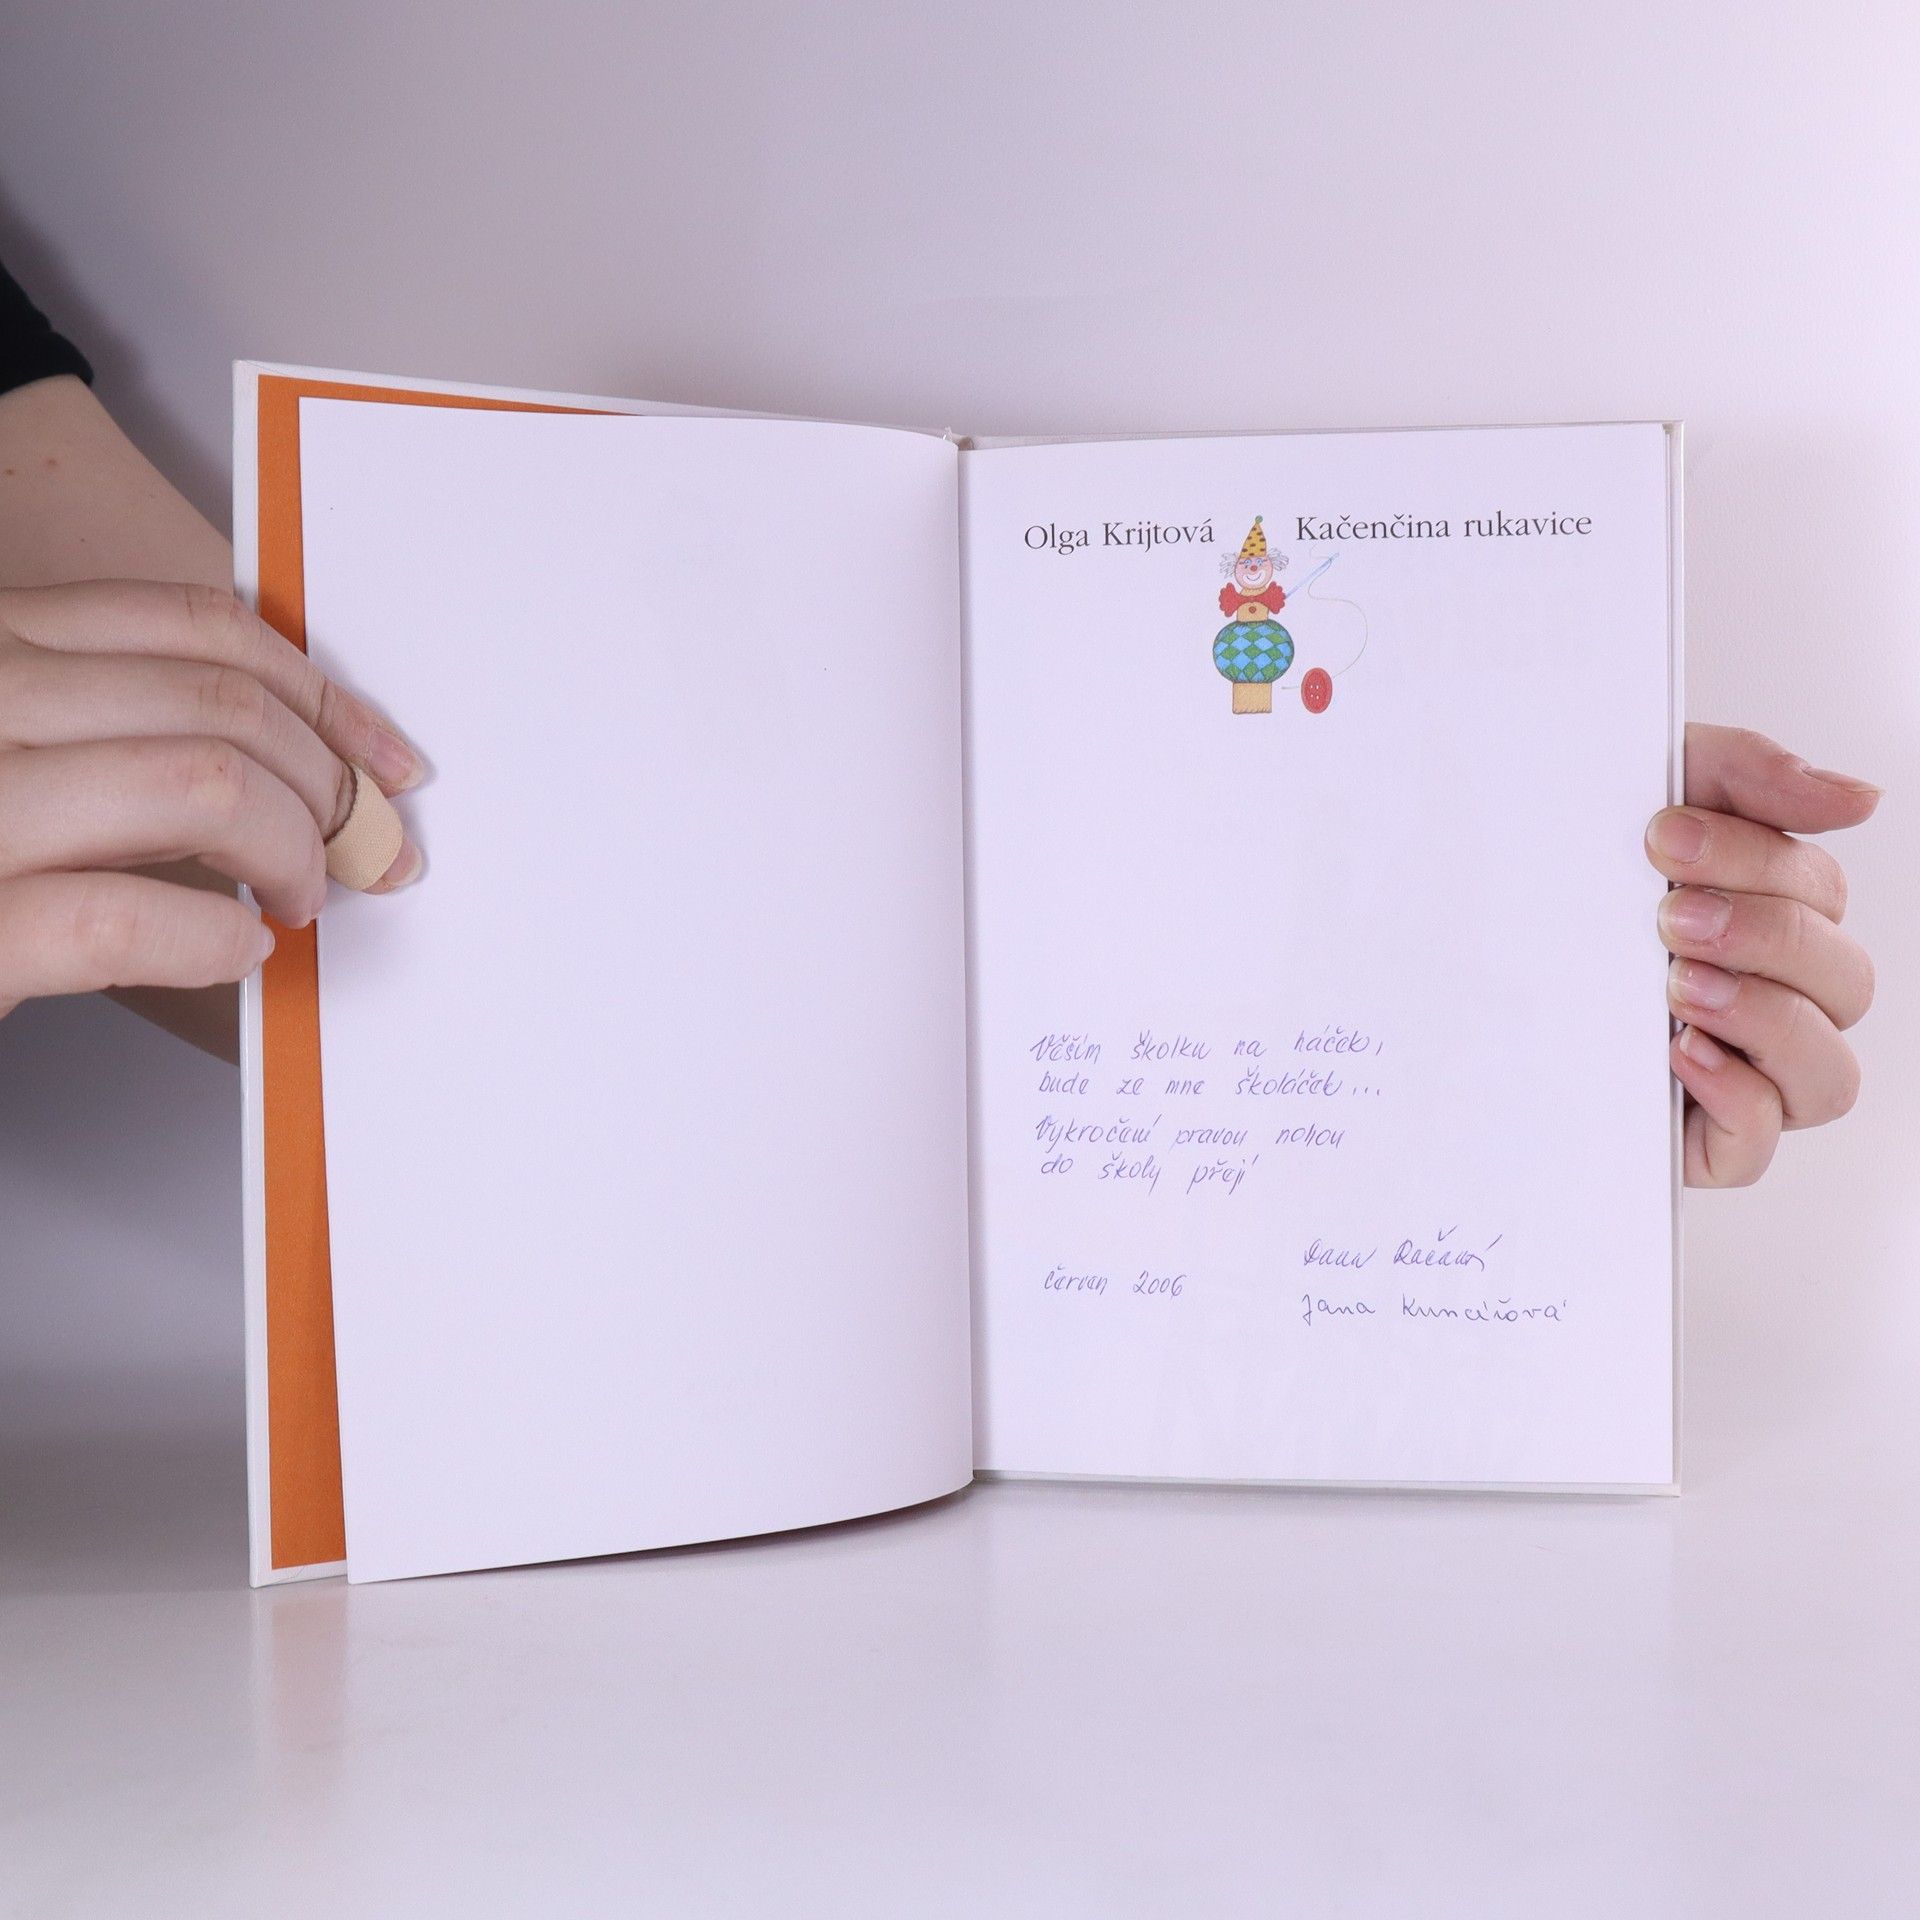 Olga Krijtová Kačenčina rukavice
Věším školku na háček,
bude ze mne školáček...
Vykročení pravou nohou
do školy přejí
Dana
červen 2006
Jana Kuncířová